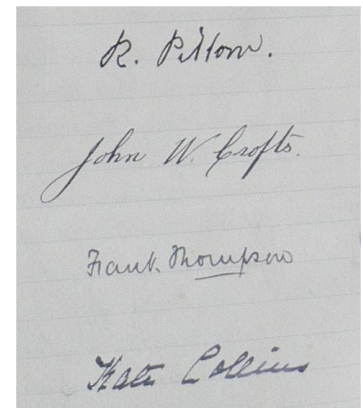 R. Pillow.
John W. Crofts.
Frank. Thompson
Kate Collins